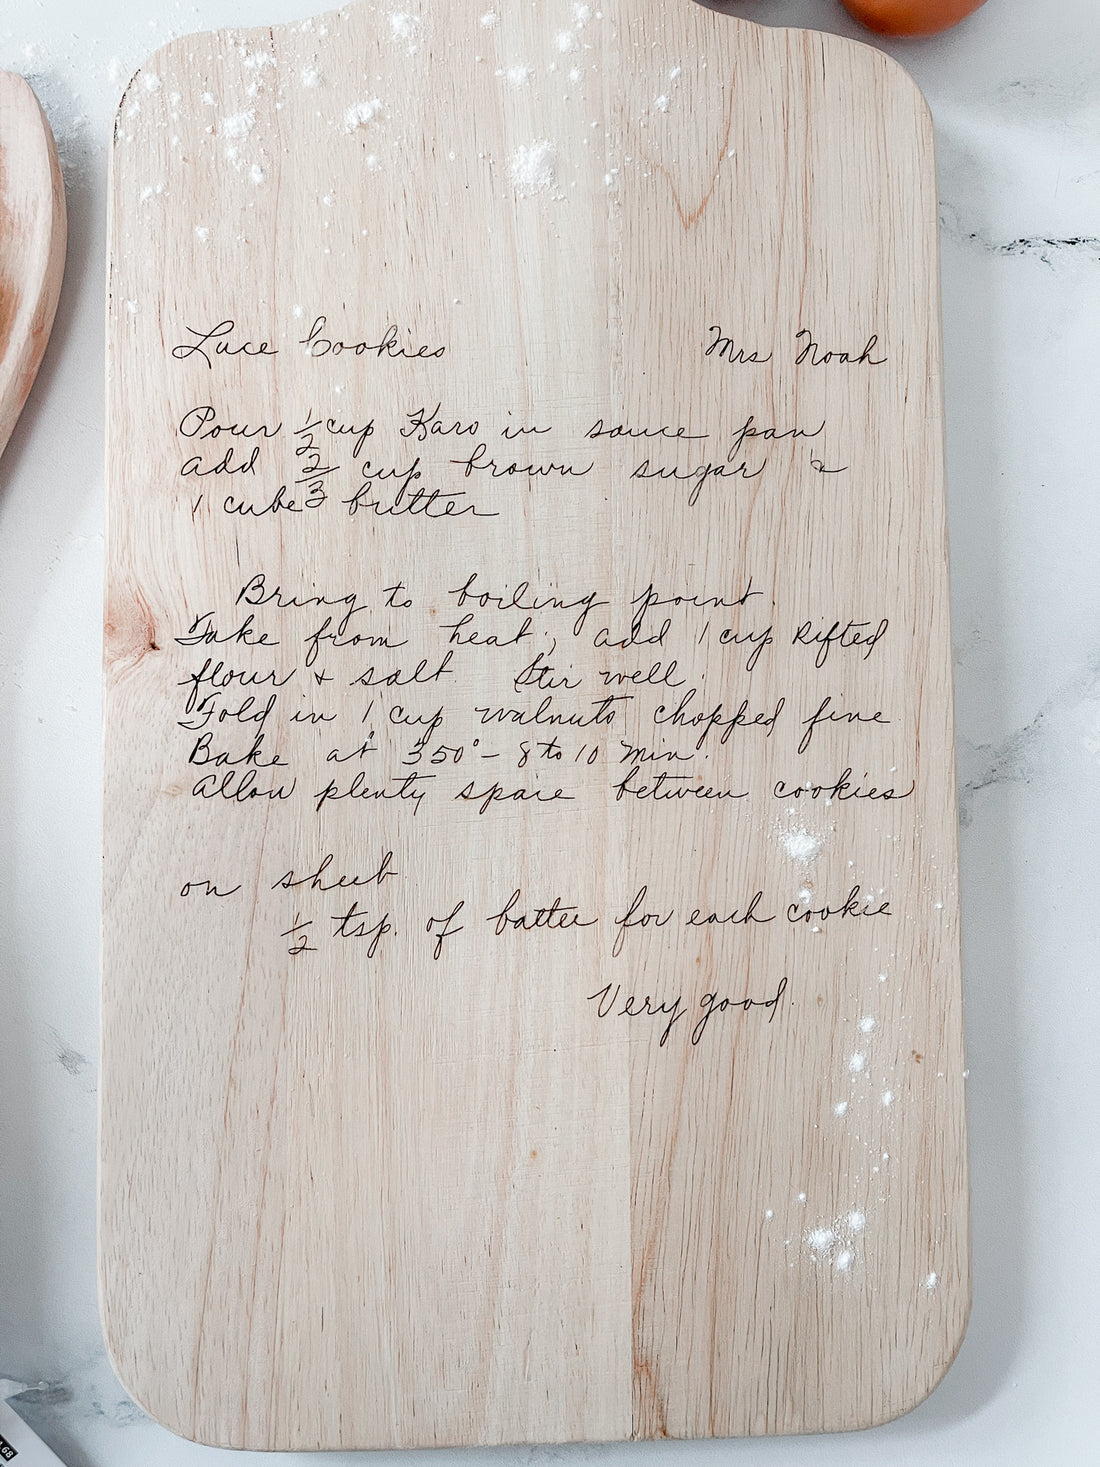 Lace Cookies Mrs Noah
Pour 1/2 cup Karo in sauce pan
add 2/3 cup brown sugar &
1 cube butter
Bring to boiling point.
Take from heat, add 1 cup sifted
flour & salt. Stir well.
Fold in 1 cup walnuts chopped fine
Bake at 350° - 8 to 10 Min.
Allow plenty space between cookies
on sheet
1/2 tsp. of batter for each cookie
Very good.
68